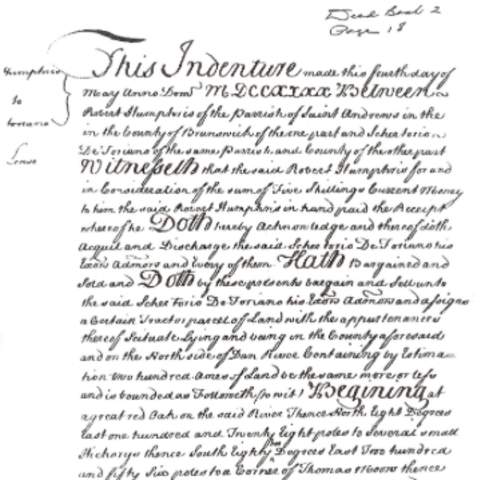 Deed Book 2
Page 18
Humphris
to
toriano
Lease
This Indenture made this fourth day of
May Anno Dom MDCCXXXX Between
Robert Humphris of the Parrish of Saint Andrews in the
in the County of Brunswick of the one part and Scheotorian
De Toriano of the same Parrish and County of the other part
Witnesseth that the said Robert Humphris for and
in Consideration of the sum of Five Shillings Current Money
to him the said Robert Humphris in hand paid the Receipt
whereof he Doth hereby Acknowledge and thereof doth
Acquit and Discharge the said Scheotorio De Toriano his
Exors Admors and Every of them Hath Bargained and
Sold and Doth by these presents bargain and Sell unto
the said Scheotorio De Toriano his Exors Admors and assigns
a Certain Tract or parcel of Land with the appurtenances
thereof Scituate Lying and being in the County aforesaid
and on the North side of Dan River Containing by Estima
tion two hundred Acres of Land be the same more or less
and is bounded as Followeth (to wit) Begining at
a great red Oak on the said River Thence North Eight Degrees
East one hundred and Twenty Eight poles to Several small
Hickorys thence South Eighty Degrees East Two hundred
and fifty Six poles to a Corner of Thomas Moors thence